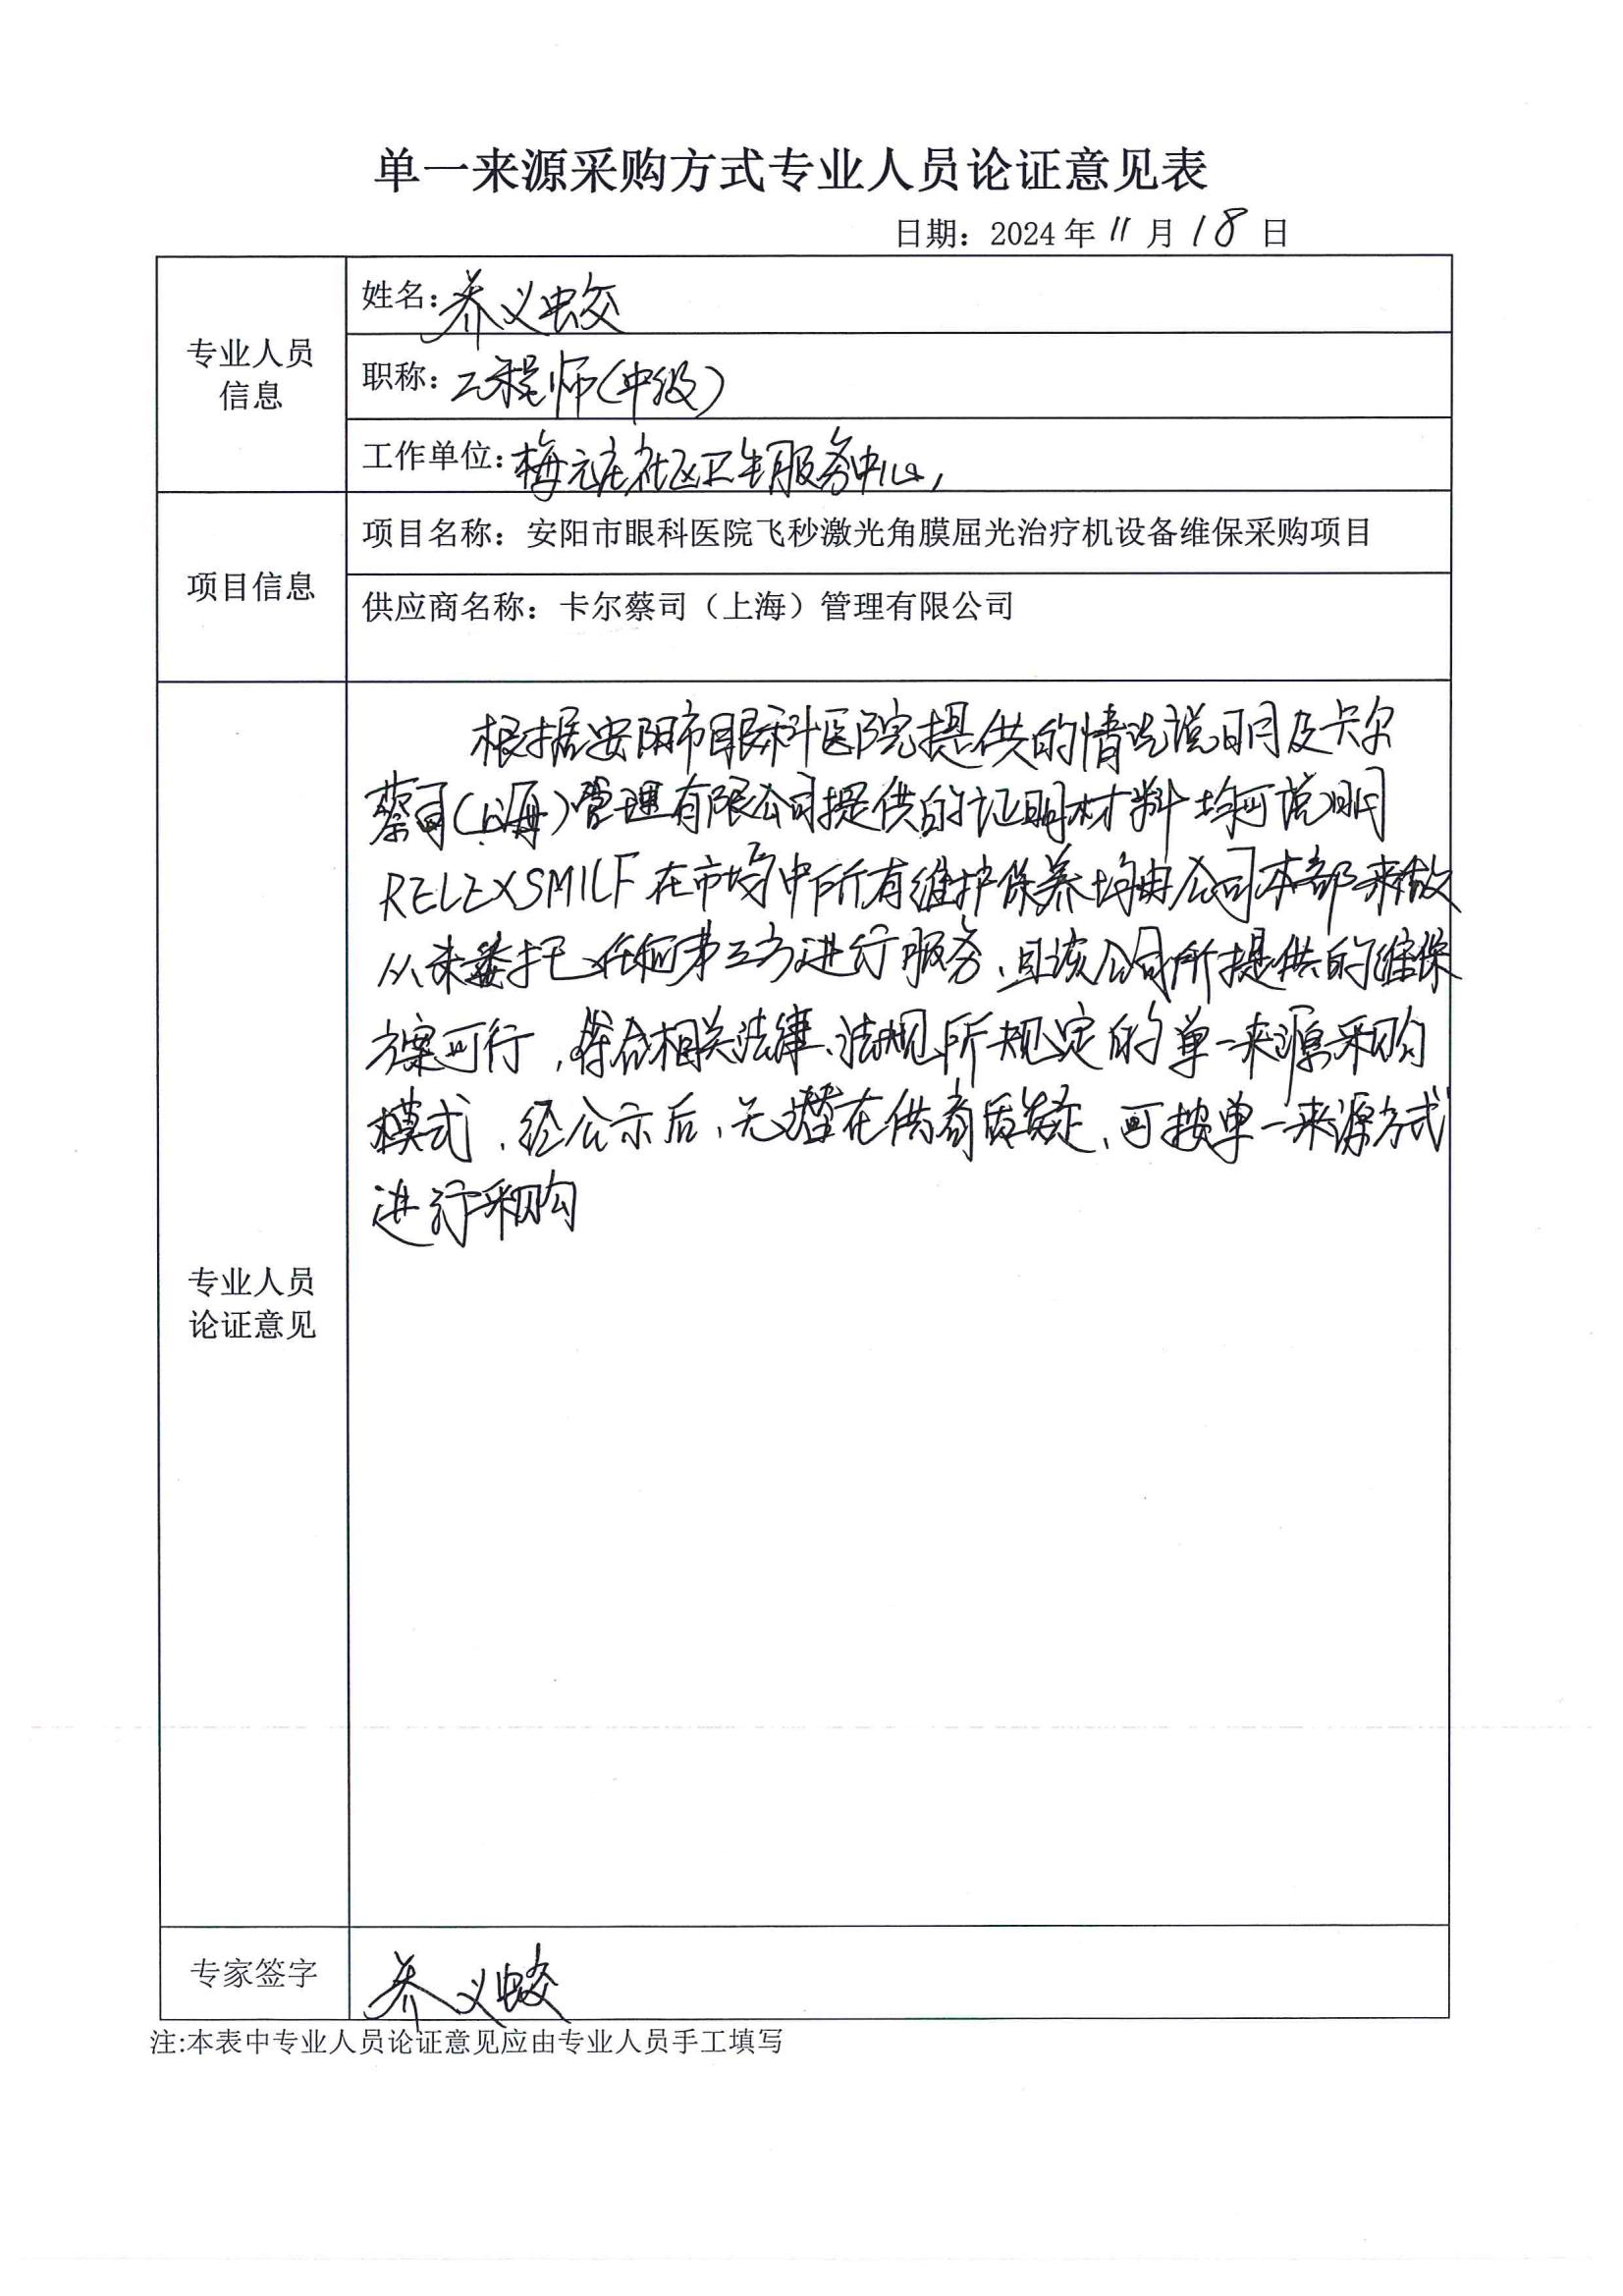 单一来源采购方式专业人员论证意见表
日期：2024年11月18日
专业人员
信息
姓名：乔义蛟
职称：工程师（中级）
工作单位：梅元庄社区卫生服务中心
项目信息
项目名称：安阳市眼科医院飞秒激光角膜屈光治疗机设备维保采购项目
供应商名称：卡尔蔡司（上海）管理有限公司
专业人员
论证意见
根据安阳市眼科医院提供的情况说明及卡尔
蔡司（上海）管理有限公司提供的证明材料均可说明
RELEXSMILF在市场中所有维护保养均由公司本部来做
从未委托任何第三方进行服务、且该公司所提供的维保
方案可行，符合相关法律、法规所规定的单一来源采购
模式、经公示后，无潜在供商质疑、可按单一来源方式
进行采购
专家签字
乔义蛟
注:本表中专业人员论证意见应由专业人员手工填写